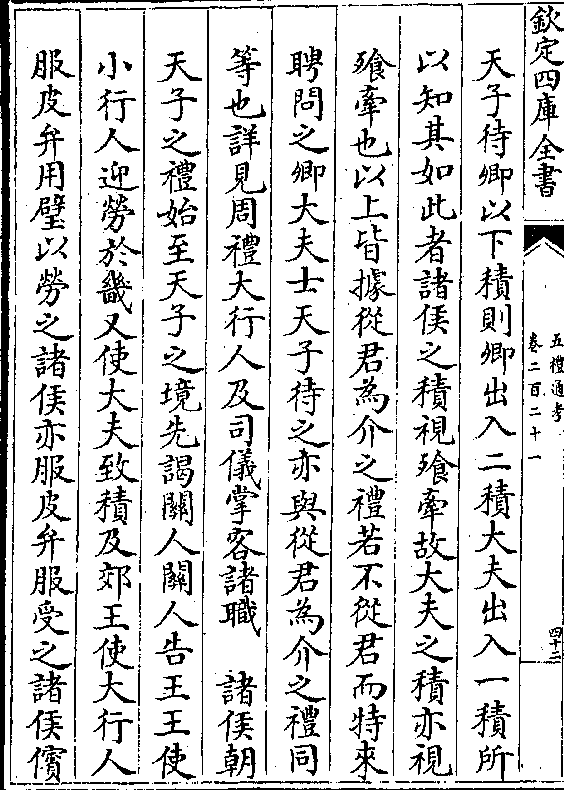 欽定四庫全書
五禮通考
卷二百二十一
四十二
天子待卿以下積則卿出入二積大夫出入一積所
以知其如此者諸侯之積視飱牽故大夫之積亦視
飱牽也以上皆據從君為介之禮若不從君而特來
聘問之卿大夫士天子待之亦與從君為介之禮同
等也詳見周禮大行人及司儀掌客諸職　諸侯朝
天子之禮始至天子之境先謁關人關人告王王使
小行人迎勞於畿又使大夫致積及郊王使大行人
服皮弁用璧以勞之諸侯亦服皮弁服受之諸侯儐